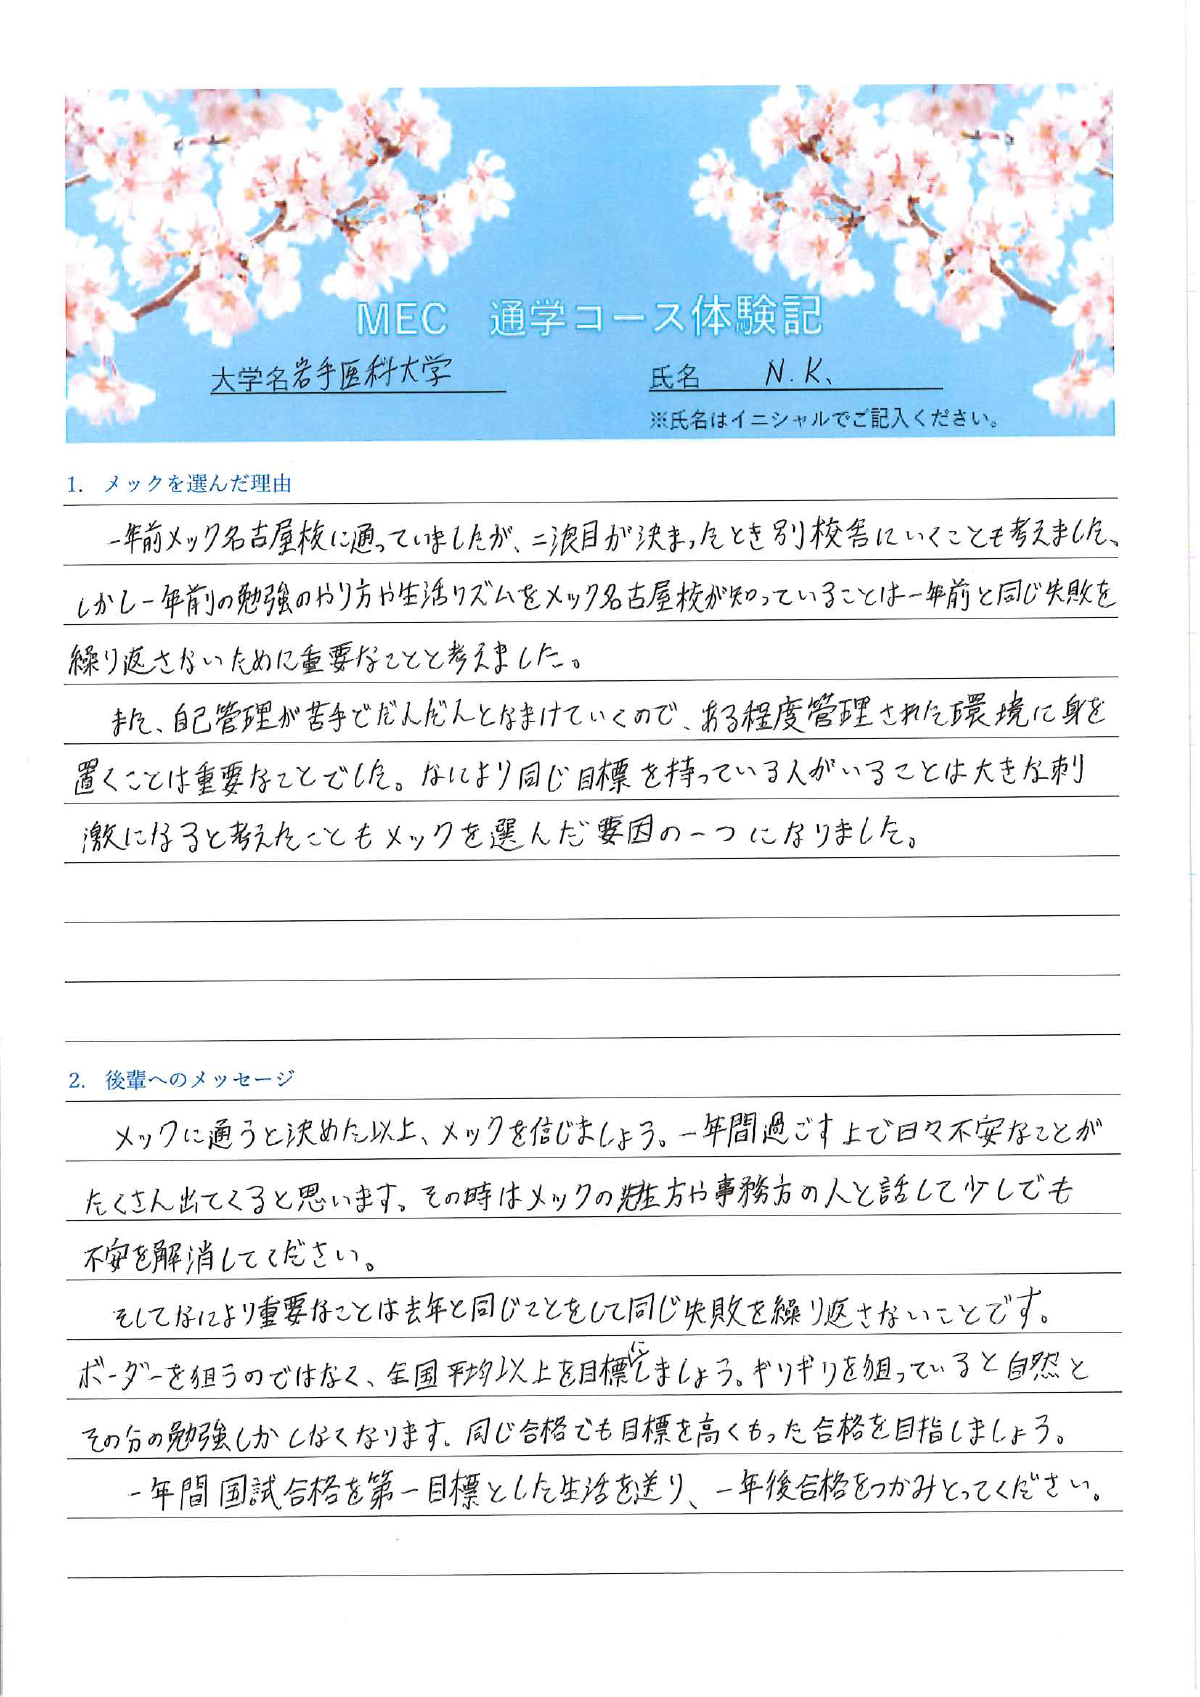 MEC 通学コース体験記
大学名 岩手医科大学 氏名 N.K.
※氏名はイニシャルでご記入ください。
1. メックを選んだ理由
一年前メック名古屋校に通っていましたが、二浪目が決まったとき別校舎にいくことも考えました、
しかし一年前の勉強のやり方や生活リズムをメック名古屋校が知っていることは一年前と同じ失敗を
繰り返さないために重要なことと考えました。
また、自己管理が苦手でだんだんとなまけていくので、ある程度管理された環境に身を
置くことは重要なことでした。なにより同じ目標を持っている人がいることは大きな刺
激になると考えたこともメックを選んだ要因の一つになりました。
2. 後輩へのメッセージ
メックに通うと決めた以上、メックを信じましょう。一年間過ごす上で日々不安なことが
たくさん出てくると思います。その時はメックの先生方や事務方の人と話して少しでも
不安を解消してください。
そしてなにより重要なことは去年と同じことをして同じ失敗を繰り返さないことです。
ボーダーを狙うのではなく、全国平均以上を目標にしましょう。ギリギリを狙っていると自然と
その分の勉強しかしなくなります。同じ合格でも目標を高くもった合格を目指しましょう。
一年間国試合格を第一目標とした生活を送り、一年後合格をつかみとってください。